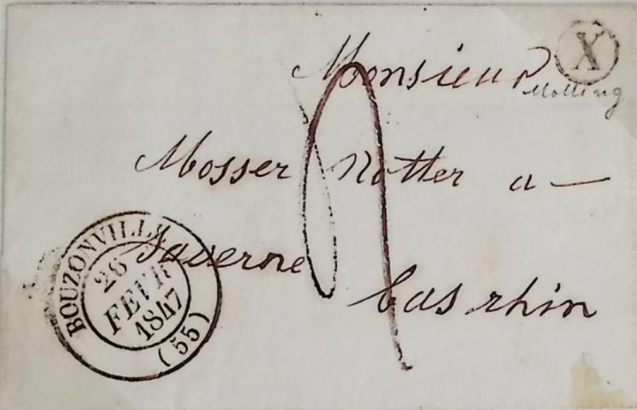 Monsieur
X
Molling
Mosser Notter a
Saverne
bas rhin
BOUZONVILLE
26
FEVR
1847
(55)